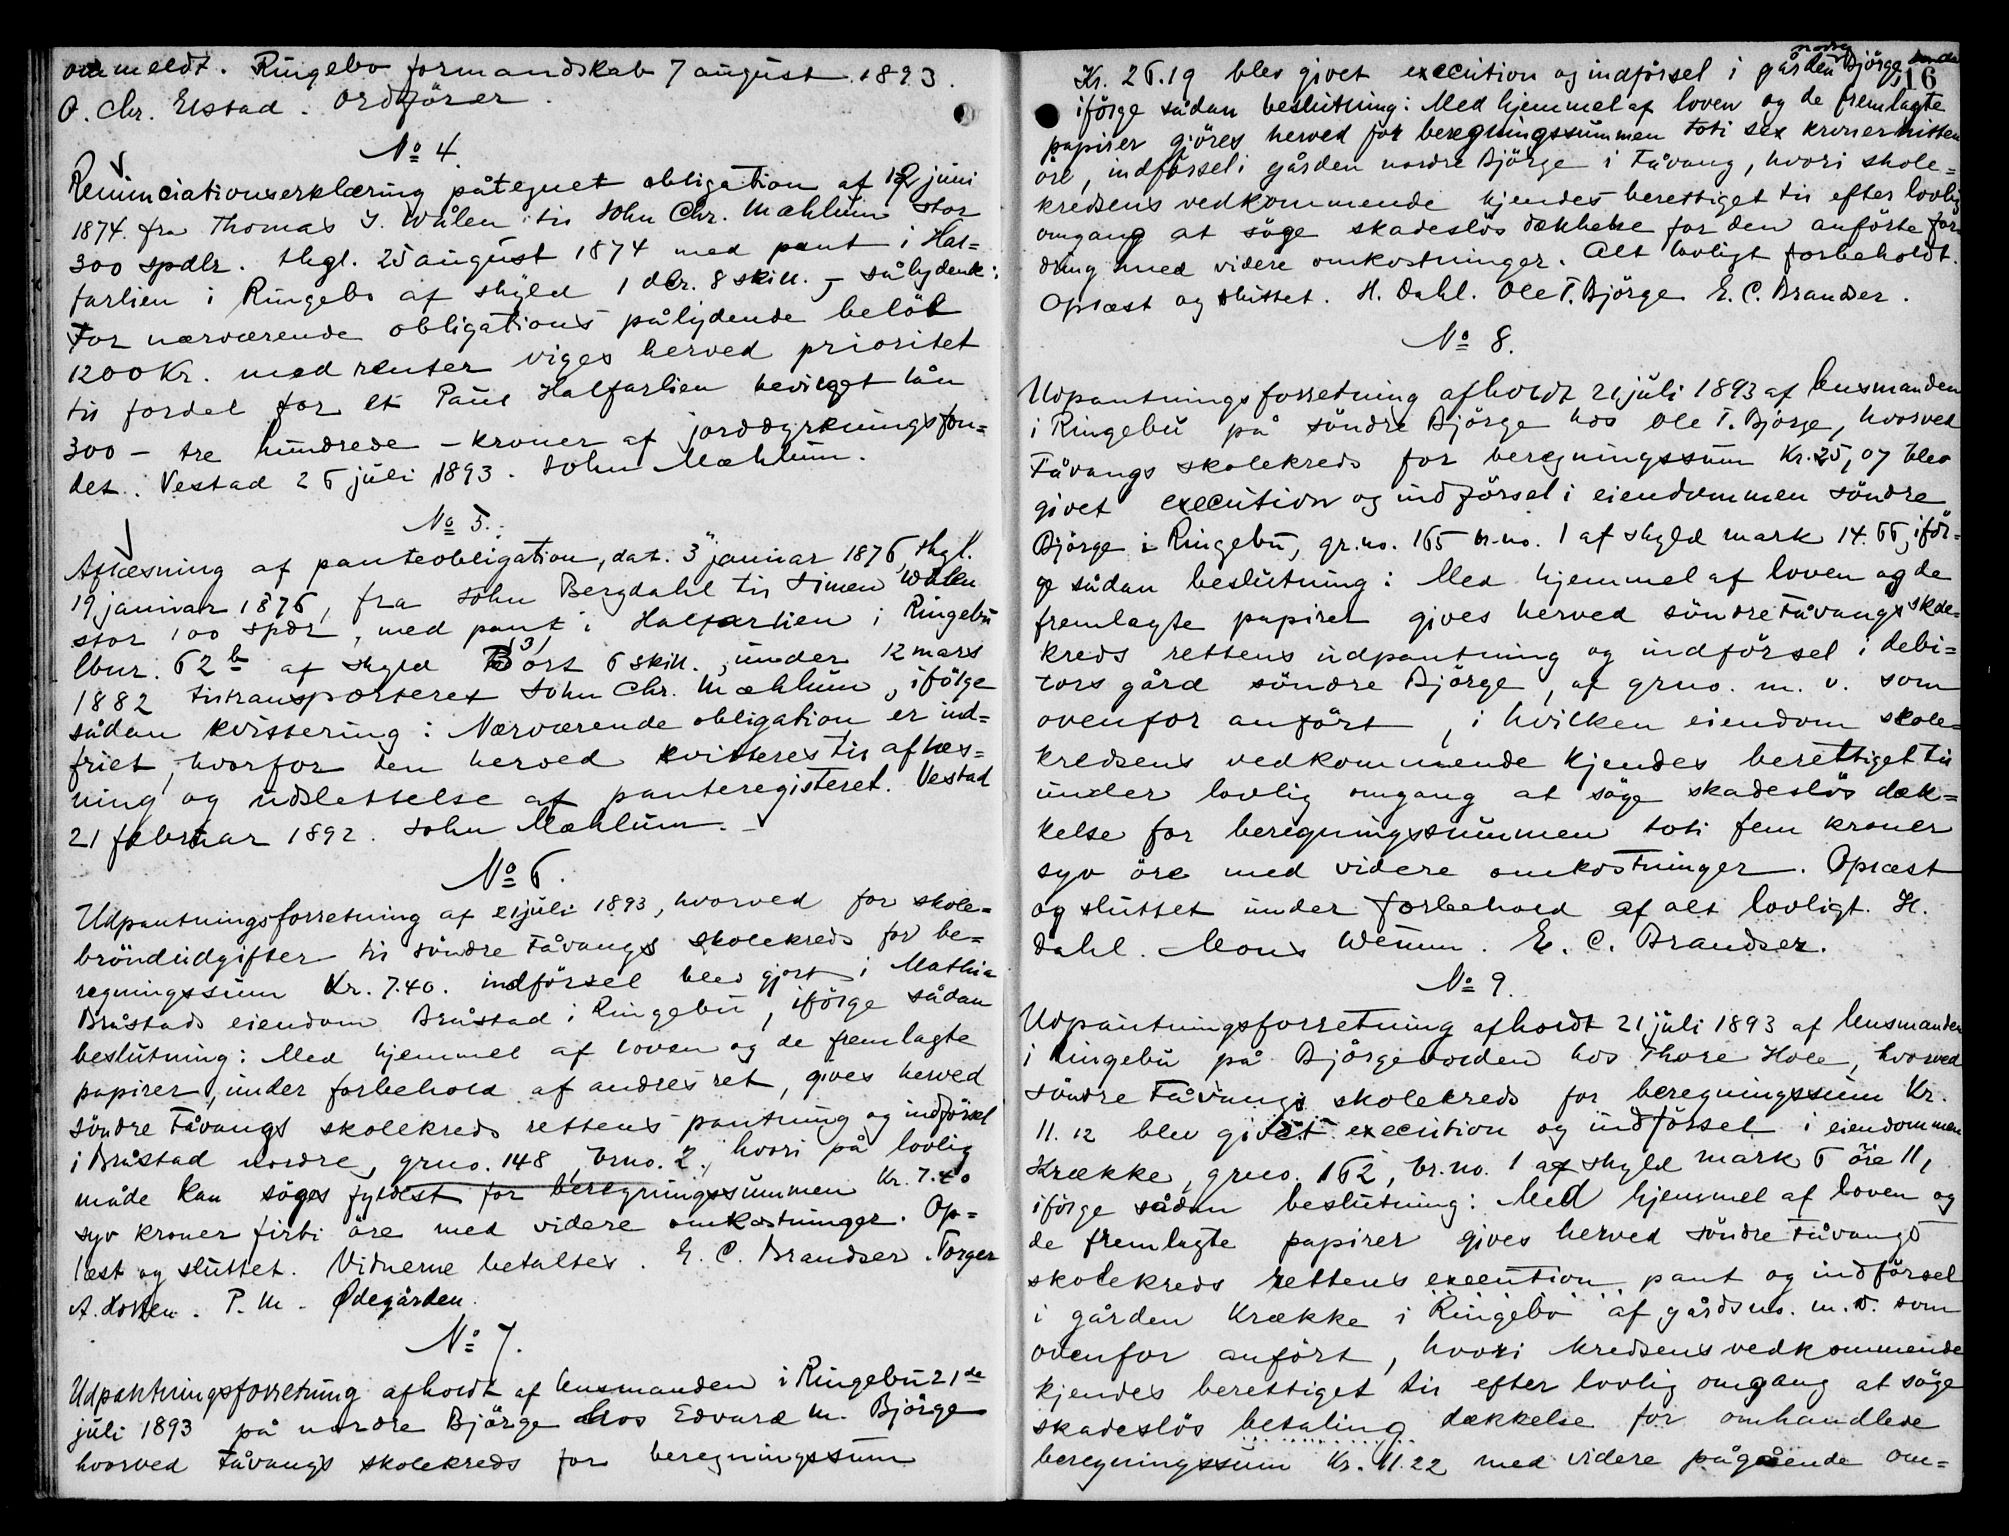 anmeldt. Ringebo formandskab 7 august 1893.
O. Chr. Elstad. Ordförer.
No 4.
Renunciationserklæring påtegnet obligation af 12 juni
1874 fra Thomas J. Wålen til John Chr. Mæhlum stor
300 spdlr. thgl. 25 august 1874 med pant i Hal=
farlien i Ringebo af skyld 1 dlr. 8 skill. - sålydende:
For nærværende obligations pålydende belöb
1200 Kr. med renter viges herved prioritet
til fordel for et Paul Halfarlien bevilget lån
300 - tre hundrede - kroner af jorddyrkningsfon=
det. Vestad 26 juli 1893. John Mæhlum.
No 5.
Aflæsning af panteobligation, dat. 3 januar 1876, thgl.
19 januar 1876, fra John Bergdahl til Simen Wålen
stor 100 spdr, med pant i Halfarlien i Ringebu
lbnr. 62b af skyld 3 ort 6 skill., under 12 mars
1882 tiltransporteret John Chr. Mæhlum, ifölge
sådan kvittering: Nærværende obligation er ind=
friet, hvorfor den herved kvitteres til aflæs=
ning og udslettelse af panteregisteret. Vestad
21 februar 1892. John Mæhlum.
No 6.
Udpantningsforretning af 21 juli 1893, hvorved for skole=
bröndudgifter til söndre Fåvangs skolekreds for be=
regningssum Kr. 7.40. indförsel blev gjort i Mathia
Bråstads eiendom Bråstad i Ringebu, ifölge sådan
beslutning: Med hjemmel af loven og de fremlagte
papirer, under forbehold af andres ret, gives herved
söndre Fåvangs skolekreds rettens pantning og indförsel
i Bråstad nordre, grno. 148, brno. 2, hvori på lovlig
måde kan söges fyldest for beregningssummen Kr. 7.40
syv kroner firti öre med videre omkostninger. Op=
læst og sluttet. Vidnerne betaltes. E. C. Brandser. Torger
A. P. M. Ødegården.
No 7.
Udpantningsforretning afholdt af lensmanden i Ringebu 21de
juli 1893 på nordre Björge hos Edvard M. Björge
hvorved Fåvangs skolekreds for beregningssum
16
Kr. 26.19 blev givet execution og indförsel i gården nordre Björge
ifölge sådan beslutning: Med hjemmel af loven og de fremlagte
papirer gjöres herved for beregningssummen toti sex kroner nitten
öre, indförsel i gården nordre Björge i Fåvang, hvori skole=
kredsens vedkommende kjendes berettiget til efter lovlig
omgang at söge skadeslös dækkelse for den anförte for=
dring med videre omkostninger. Alt lovligt forbeholdt.
Oplæst og sluttet. H. Dahl. Ole T. Björge E. C. Brandser.
No 8.
Udpantningsforretning afholdt 21 juli 1893 af lensmanden
i Ringebu på söndre Björge hos Ole T. Björge, hvorved
Fåvangs skolekreds for beregningssum Kr. 25,07 blev
givet execution og indförsel i eiendommen söndre
Björge i Ringebu, gr.no. 165 br.no. 1 af skyld mark 14.66, iföl=
ge sådan beslutning: Med hjemmel af loven og de
fremlagte papirer gives herved söndre Fåvangs skole=
kreds rettens udpantning og indförsel i debi=
tors gård söndre Björge, af grno. m. v. som
ovenfor anfört, i hvilken eiendom skole=
kredsens vedkommende kjendes berettiget til
under lovlig omgang at söge skadeslös dæk=
kelse for beregningssummen toti fem kroner
syv öre med videre omkostninger. Oplæst
og sluttet under forbehold af alt lovligt. H.
Dahl. Mons Wemm. E. C. Brandser.
No 9.
Udpantningsforretning afholdt 21 juli 1893 af lensmanden
i Ringebu på Björgevolden hos Thore Hole, hvorved
söndre Fåvangs skolekreds for beregningssum Kr.
11.12 blev givet execution og indförsel i eiendommen
Krække, grno. 162, br.no. 1 af skyld mark 6 öre 11,
ifölge sådan beslutning: Med hjemmel af loven og
de fremlagte papirer gives herved söndre Fåvangs
skolekreds rettens execution pant og indförsel
i gården Krække i Ringebo af gårdsno. m.v. som
ovenfor anfört, hvori kredsens vedkommende
kjendes berettiget til efter lovlig omgang at söge
skadeslös betaling dækkelse for omhandlede
beregningssum Kr. 11.22 med videre pågående om=